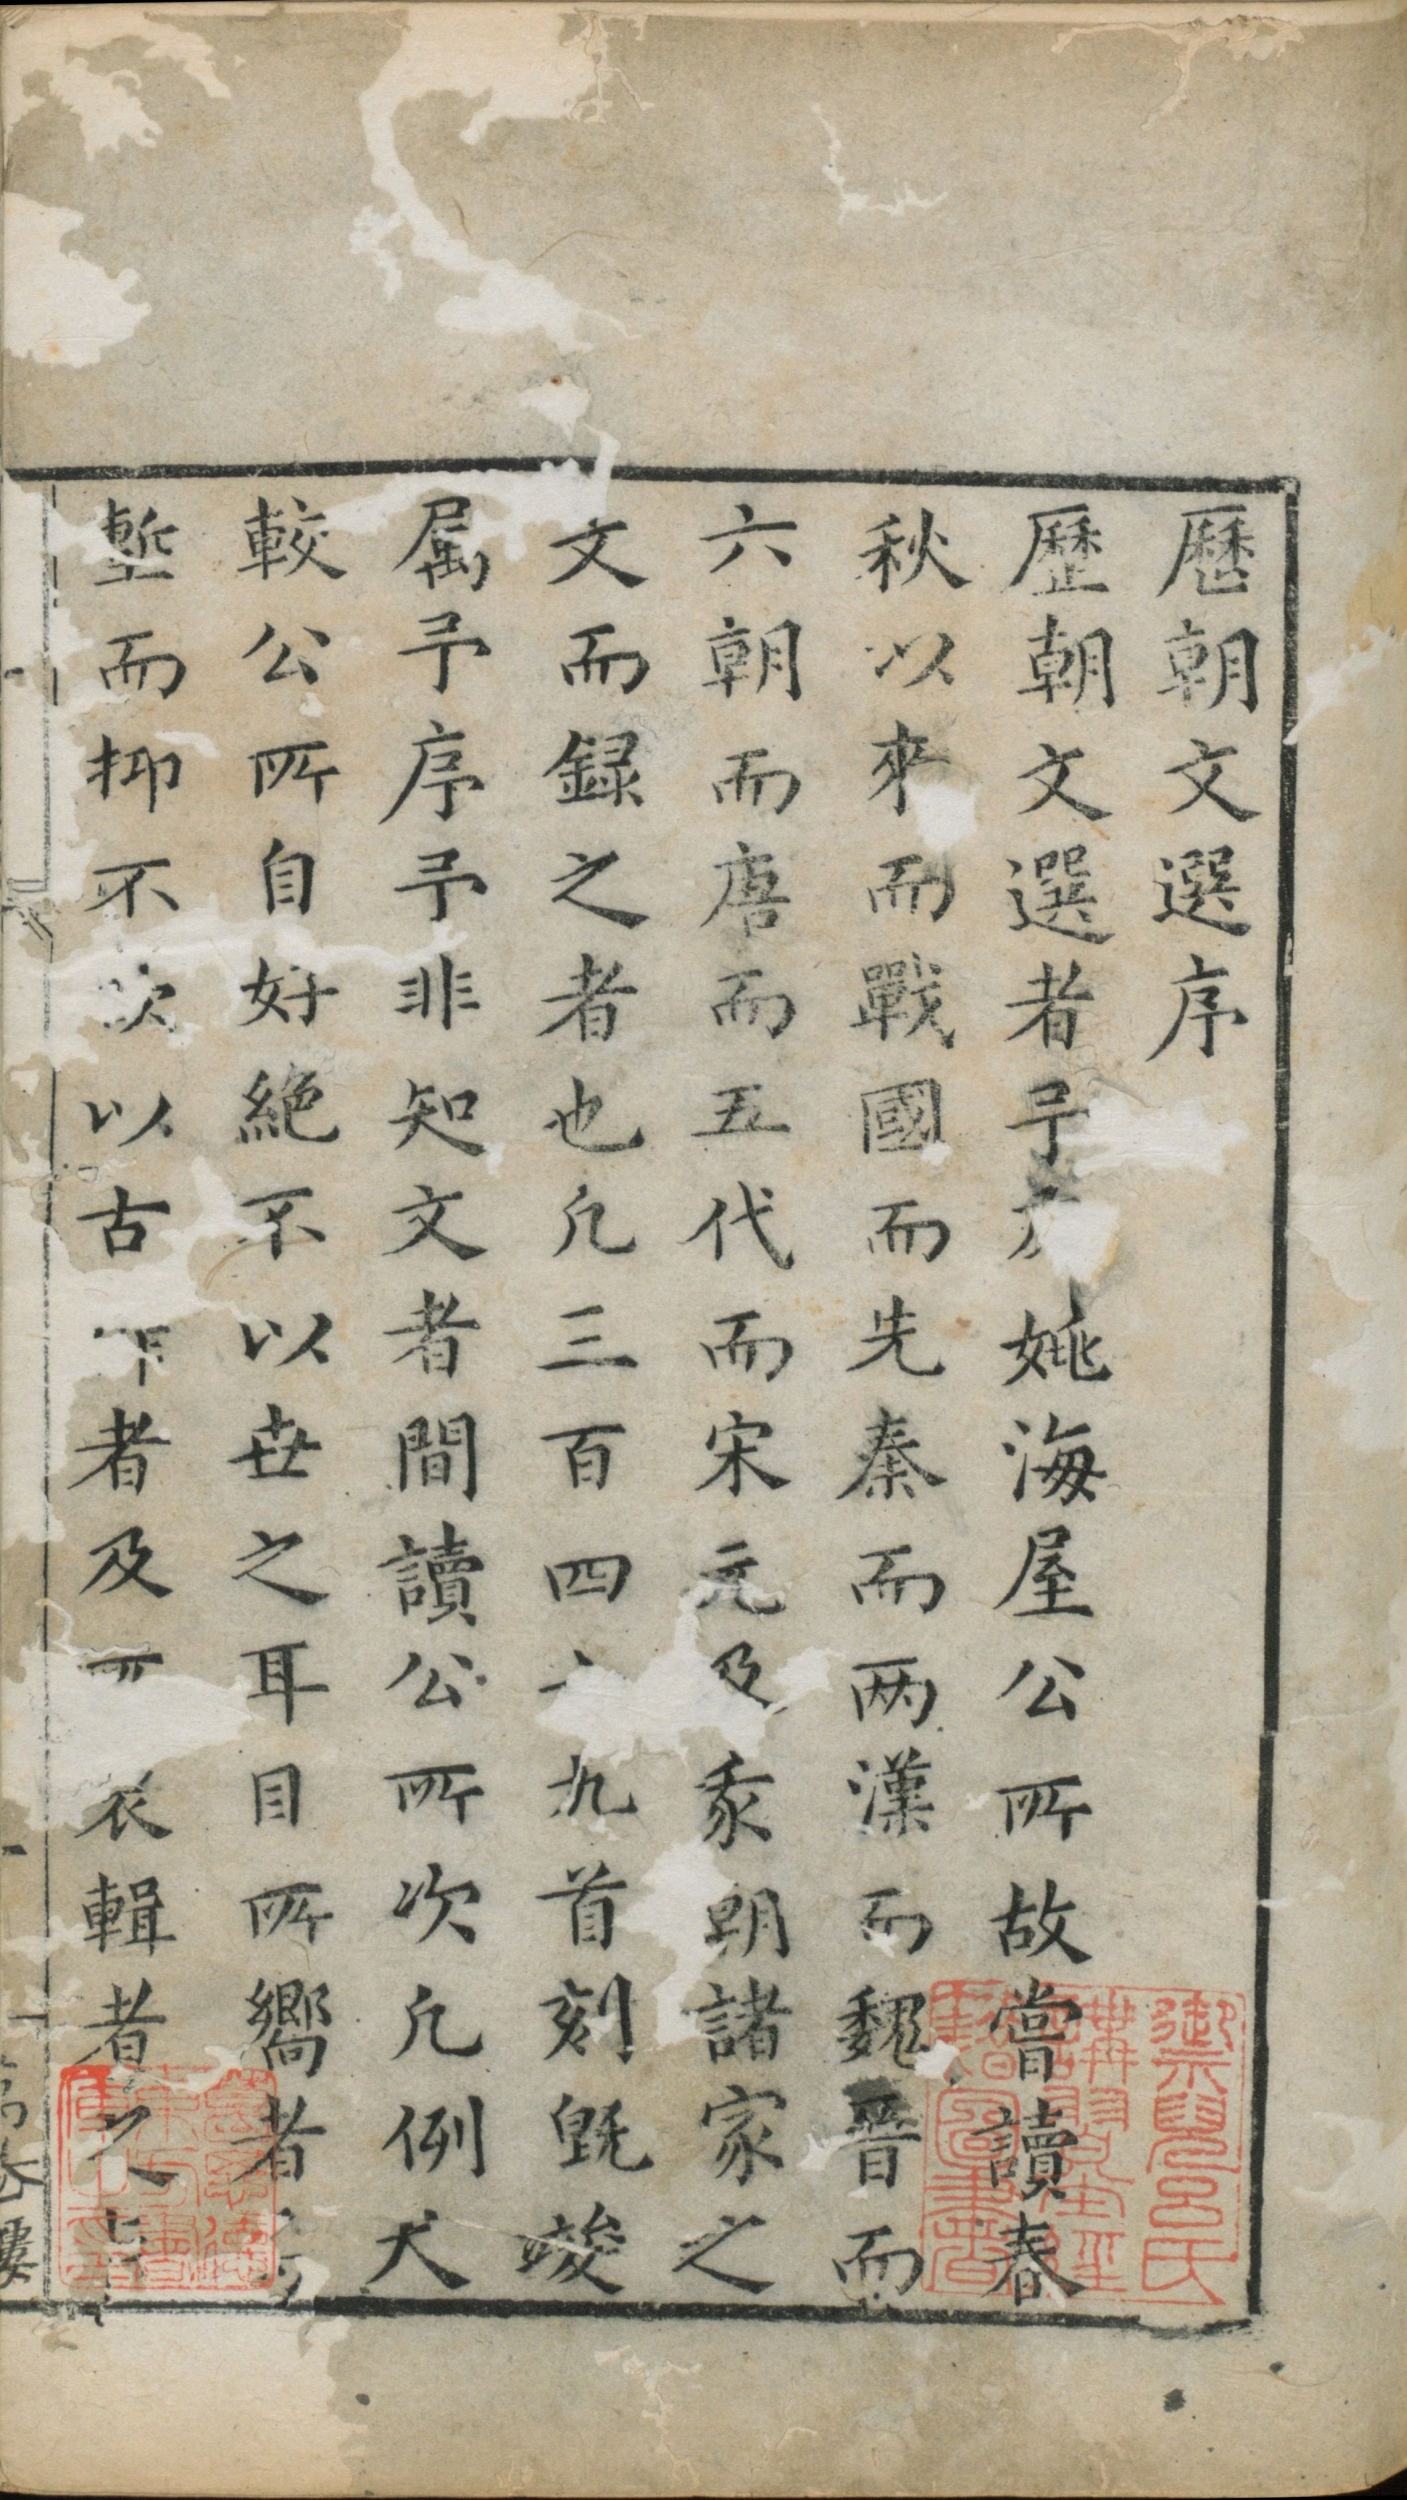 歷朝文選序
歷朝文選者予友姚海屋公所故嘗讀春
秋以來而戰國而先秦而兩漢而魏晉而
六朝而唐而五代而宋元及我朝諸家之
文而録之者也凡三百四九首刻既竣
属予序予非知文者間讀公所次凡例大
較公所自好絶不以世之耳目所嚮者
塹而抑不次以古下者及裒輯者之
御兒呂氏講習堂經籍圖書